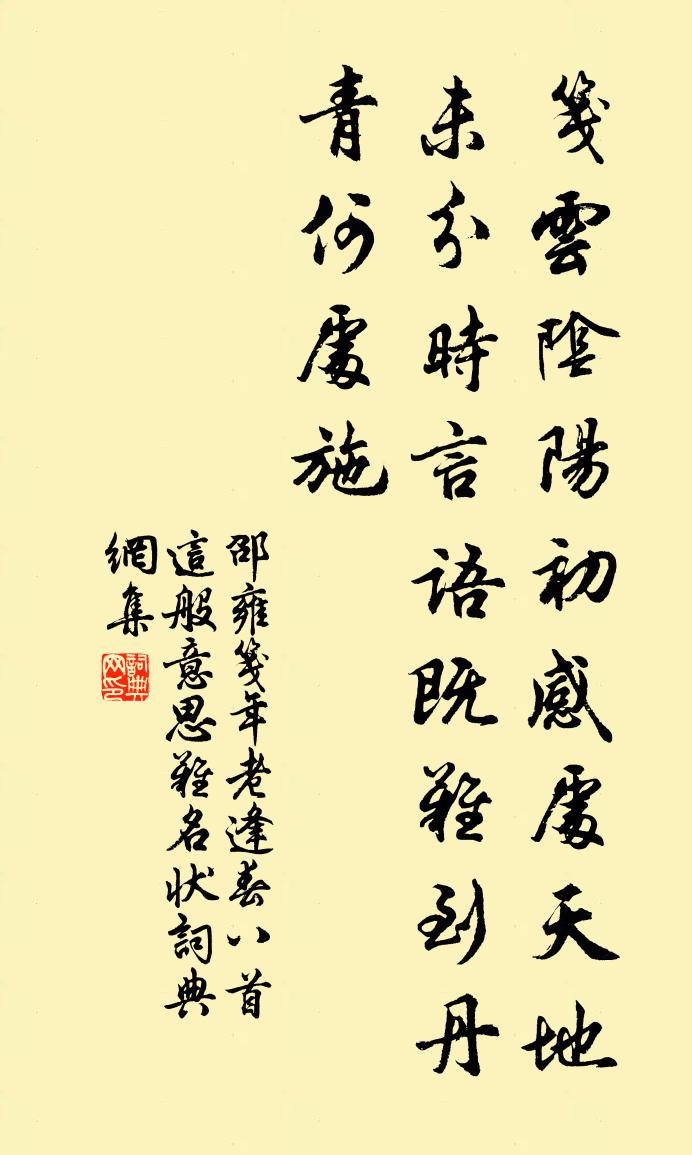 箋雲陰陽初感處天地
未分時言語既難到丹
青何處施
邵雍箋年老逢春八首
這般意思難名狀詞典
網集
詞典網印